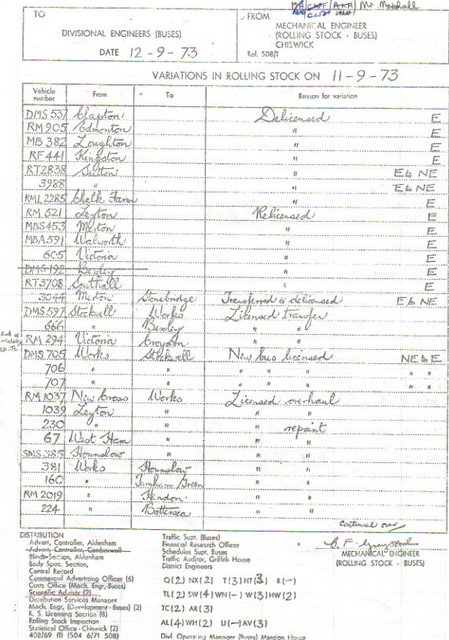 Mr Marshall
TO
FROM
DIVISIONAL ENGINEERS (BUSES)
MECHANICAL ENGINEER
(ROLLING STOCK - BUSES)
CHISWICK
DATE 12-9-73
Ref. 508/1
VARIATIONS IN ROLLING STOCK ON 11-9-73
Vehicle number From To Reason for variation
DMS 537 Clapton Delicensed E
RM 905 Edmonton " E
MB 382 Loughton " E
RF 441 Kingston " E
RT 2838 Sutton " E & NE
3988 " " E & NE
RML 2285 Chalk Farm " E
RM 521 Leyton Relicensed E
MBS 453 Merton " E
MBA 591 Walworth " E
605 Victoria " E
DMS 192 Bexley " E
RT 3708 Southall " E
3044 Merton Stonebridge Transferred & delicensed E & NE
DMS 597 Stockwell Works Licensed transfer
666 " Bexley " "
RM 294 Victoria Croydon " "
DMS 705 Works Stockwell New bus licensed NE & E
706 " " " " " "
707 " " " " " "
RM 1037 New Cross Works Licensed overhaul
1039 Leyton " " "
230 " " " repaint
67 West Ham " " "
SMS 385 Hounslow " " "
381 Works Hounslow " "
160 " Turnham Green " "
RM 2019 " Hendon " "
224 " Battersea " "
continued over
MECHANICAL ENGINEER
(ROLLING STOCK - BUSES)
DISTRIBUTION
Advert. Controller, Aldenham
Advert. Controller, Camberwell
Blinds Section, Aldenham
Body Spec. Section,
Central Record
Commercial Advertising Officer (6)
Costs Office (Mech. Engr. Buses)
Scientific Adviser (2)
Distribution Services Manager
Mech. Engr. (Development - Buses) (2)
R. S. Licensing Section (6)
Rolling Stock Inspection
Statistical Office - Chiswick (2)
408/69 (1) (504 6/71 508)
Traffic Supt. (Buses)
Financial Research Officer
Schedules Supt. Buses
Traffic Auditor, Griffith House
District Engineers
Q(2) NX(2) T(3) HT(3) R(-)
TL(2) SW(4) WN(-) W(3) HW(2)
TC(2) AR(3)
AL(4) WH(2) U(-) AV(3)
Divl. Operating Manager (Buses) Manor House